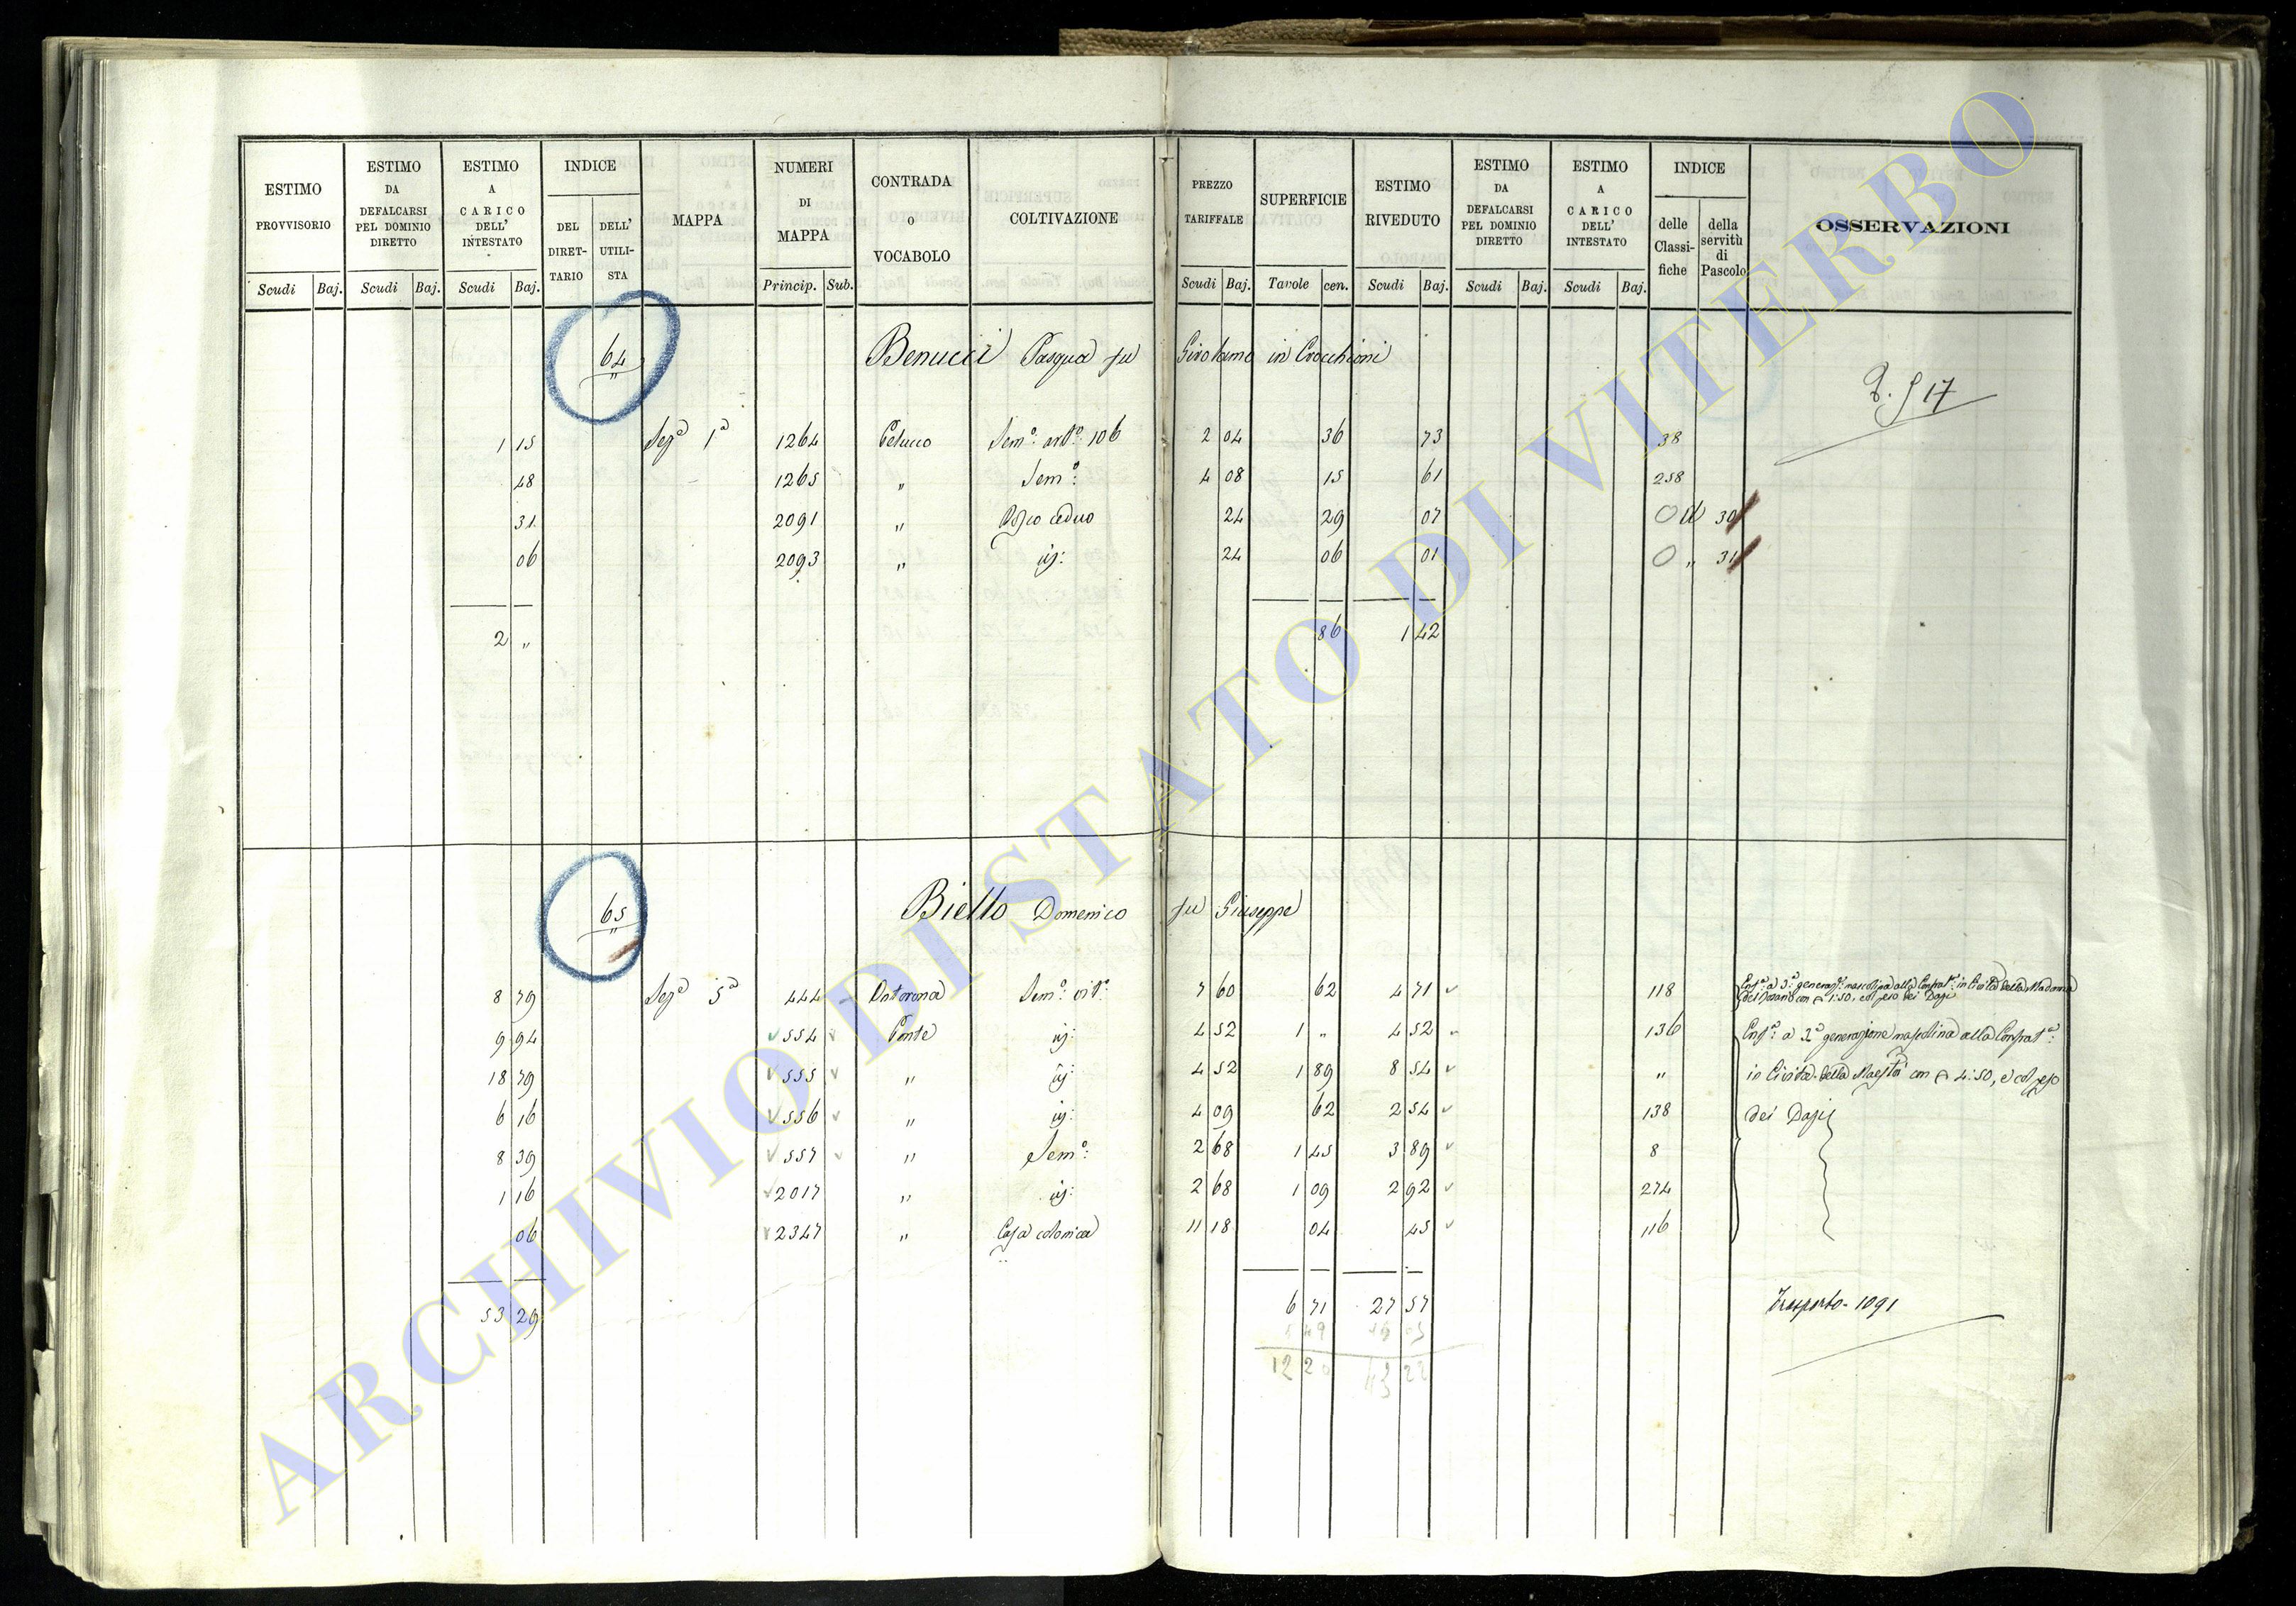 ESTIMO PROVVISORIO | ESTIMO DA DEFALCARSI PEL DOMINIO DIRETTO | ESTIMO A CARICO DELL' INTESTATO | INDICE DEL DIRET-TARIO | DELL' UTILI-STA | MAPPA | NUMERI DI MAPPA | CONTRADA O VOCABOLO | COLTIVAZIONE | PREZZO TARIFFALE | SUPERFICIE | ESTIMO RIVEDUTO | ESTIMO DA DEFALCARSI PEL DOMINIO DIRETTO | ESTIMO A CARICO DELL' INTESTATO | INDICE delle Classi-fiche | della servitù di Pascolo | OSSERVAZIONI
Scudi Baj. Scudi Baj. Scudi Baj. Princip. Sub. Scudi Baj. Tavole cen. Scudi Baj. Scudi Baj. Scudi Baj.
64 Benucci Pasqua fu Girolamo in Crocchioni
17
1 15 Sezª 1ª 1264 Pelucco Semº: vitº: 106 2 04 36 73 38
48 1265 " Semº: 4 08 15 61 258
31 2091 " Bosco ceduo 24 29 07 0 d 30
06 2093 " id: 24 06 01 0 " 31
2 " 86 1 42
65 Biello Domenico fu Giuseppe
8 79 Sezª 5ª 444 Semº: vitº: 7 60 62 4 71 118 Enfª: a 3ª generazº: mascolina alla Confratª: in Civita della Madonna
del Rosario con 1:50, e col peso dei Dazi
9 94 554 Ponte id: 4 52 1 " 4 52 136 Enfª: a 3ª generazione mascolina alla Confratª:
18 79 555 " id: 4 52 1 89 8 54 " in Civita della Maestà con 4:50, e col peso
6 16 556 " id: 4 09 62 2 54 138 dei Dazi
8 39 557 " Semº: 2 68 1 45 3 89 8
1 16 2017 " id: 2 68 1 09 2 92 274
06 2347 " Casa colonica 11 18 04 45 116
53 29 6 71 27 57 Trasporto - 1091
12 20
ARCHIVIO DI STATO DI VITERBO